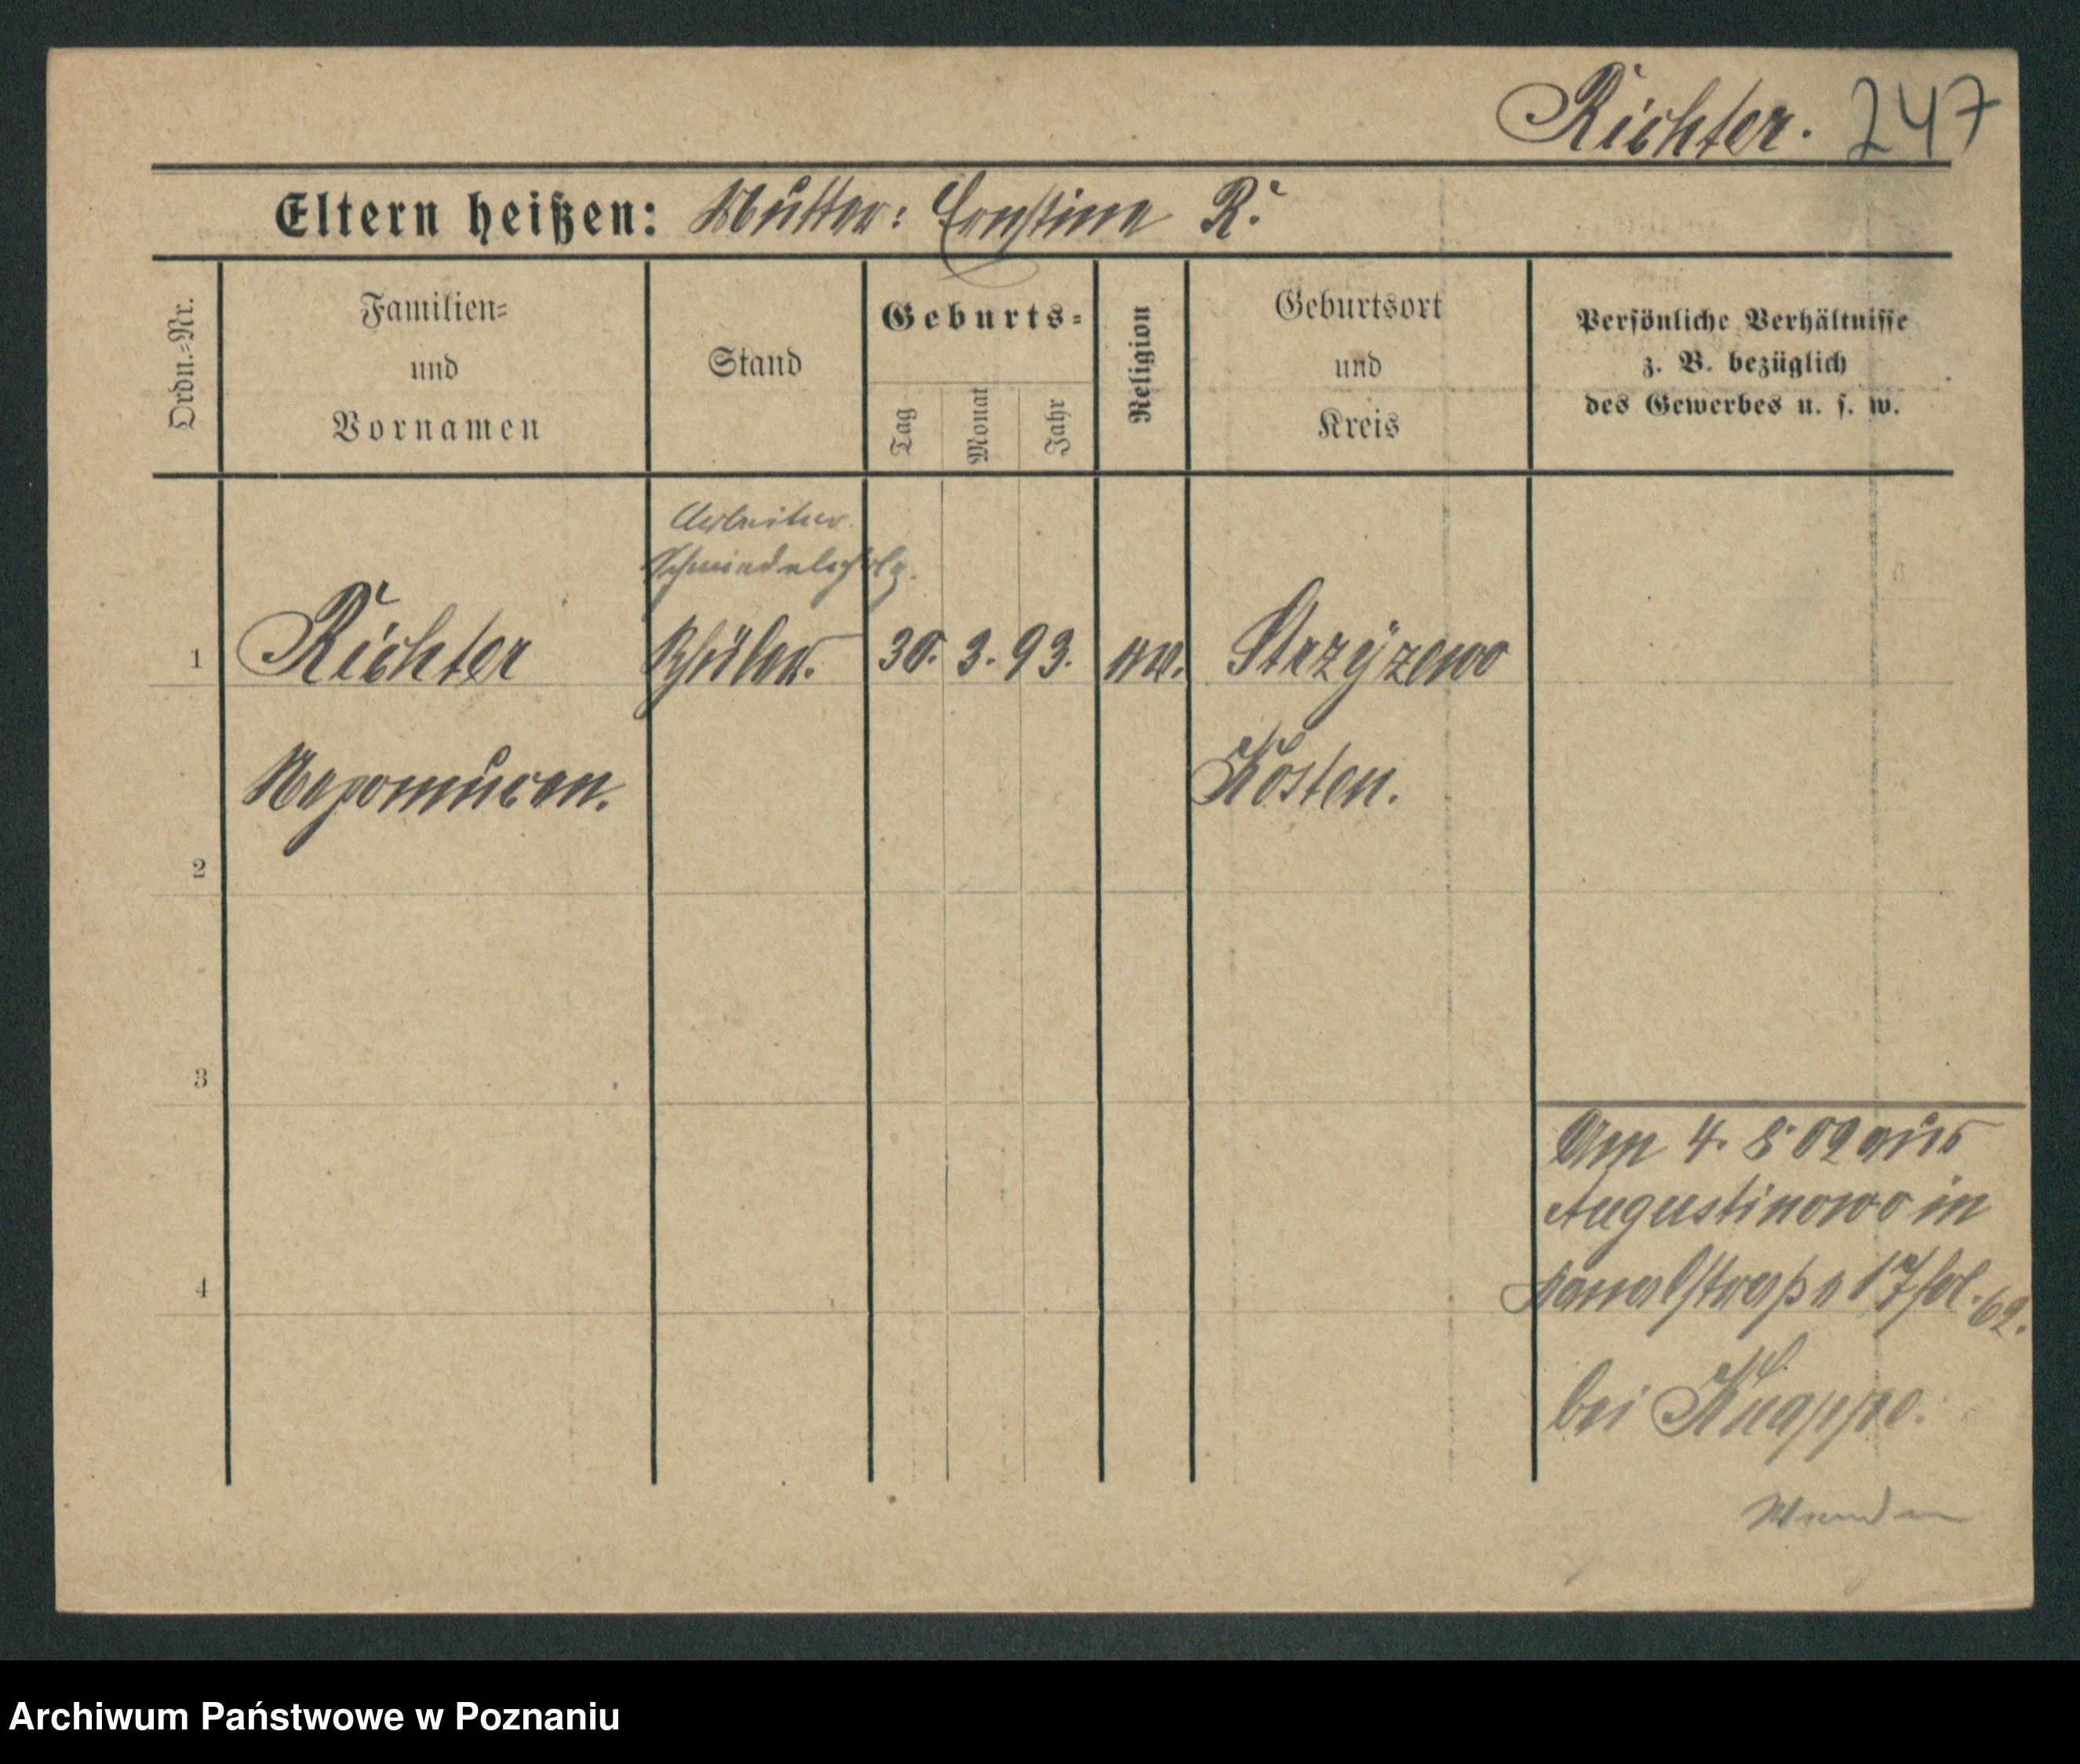 Richter. 247
Eltern heißen: Mutter: Ernstine R.
Ordn.-Nr.
Familien-
und
Vornamen
Stand
Geburts-
Tag
Monat
Jahr
Religion
Geburtsort
und
Kreis
Persönliche Verhältnisse
z. B. bezüglich
des Gewerbes u. s. w.
Arbeiter.
1 Richter Schüler. 30. 3. 93. Strzyzewo
Nepomucen. Kosten.
2
3
Am 4. 8 02 aus
Augustinowo in
4
Kanalstraße 17
bei Knappe.
Archiwum Państwowe w Poznaniu